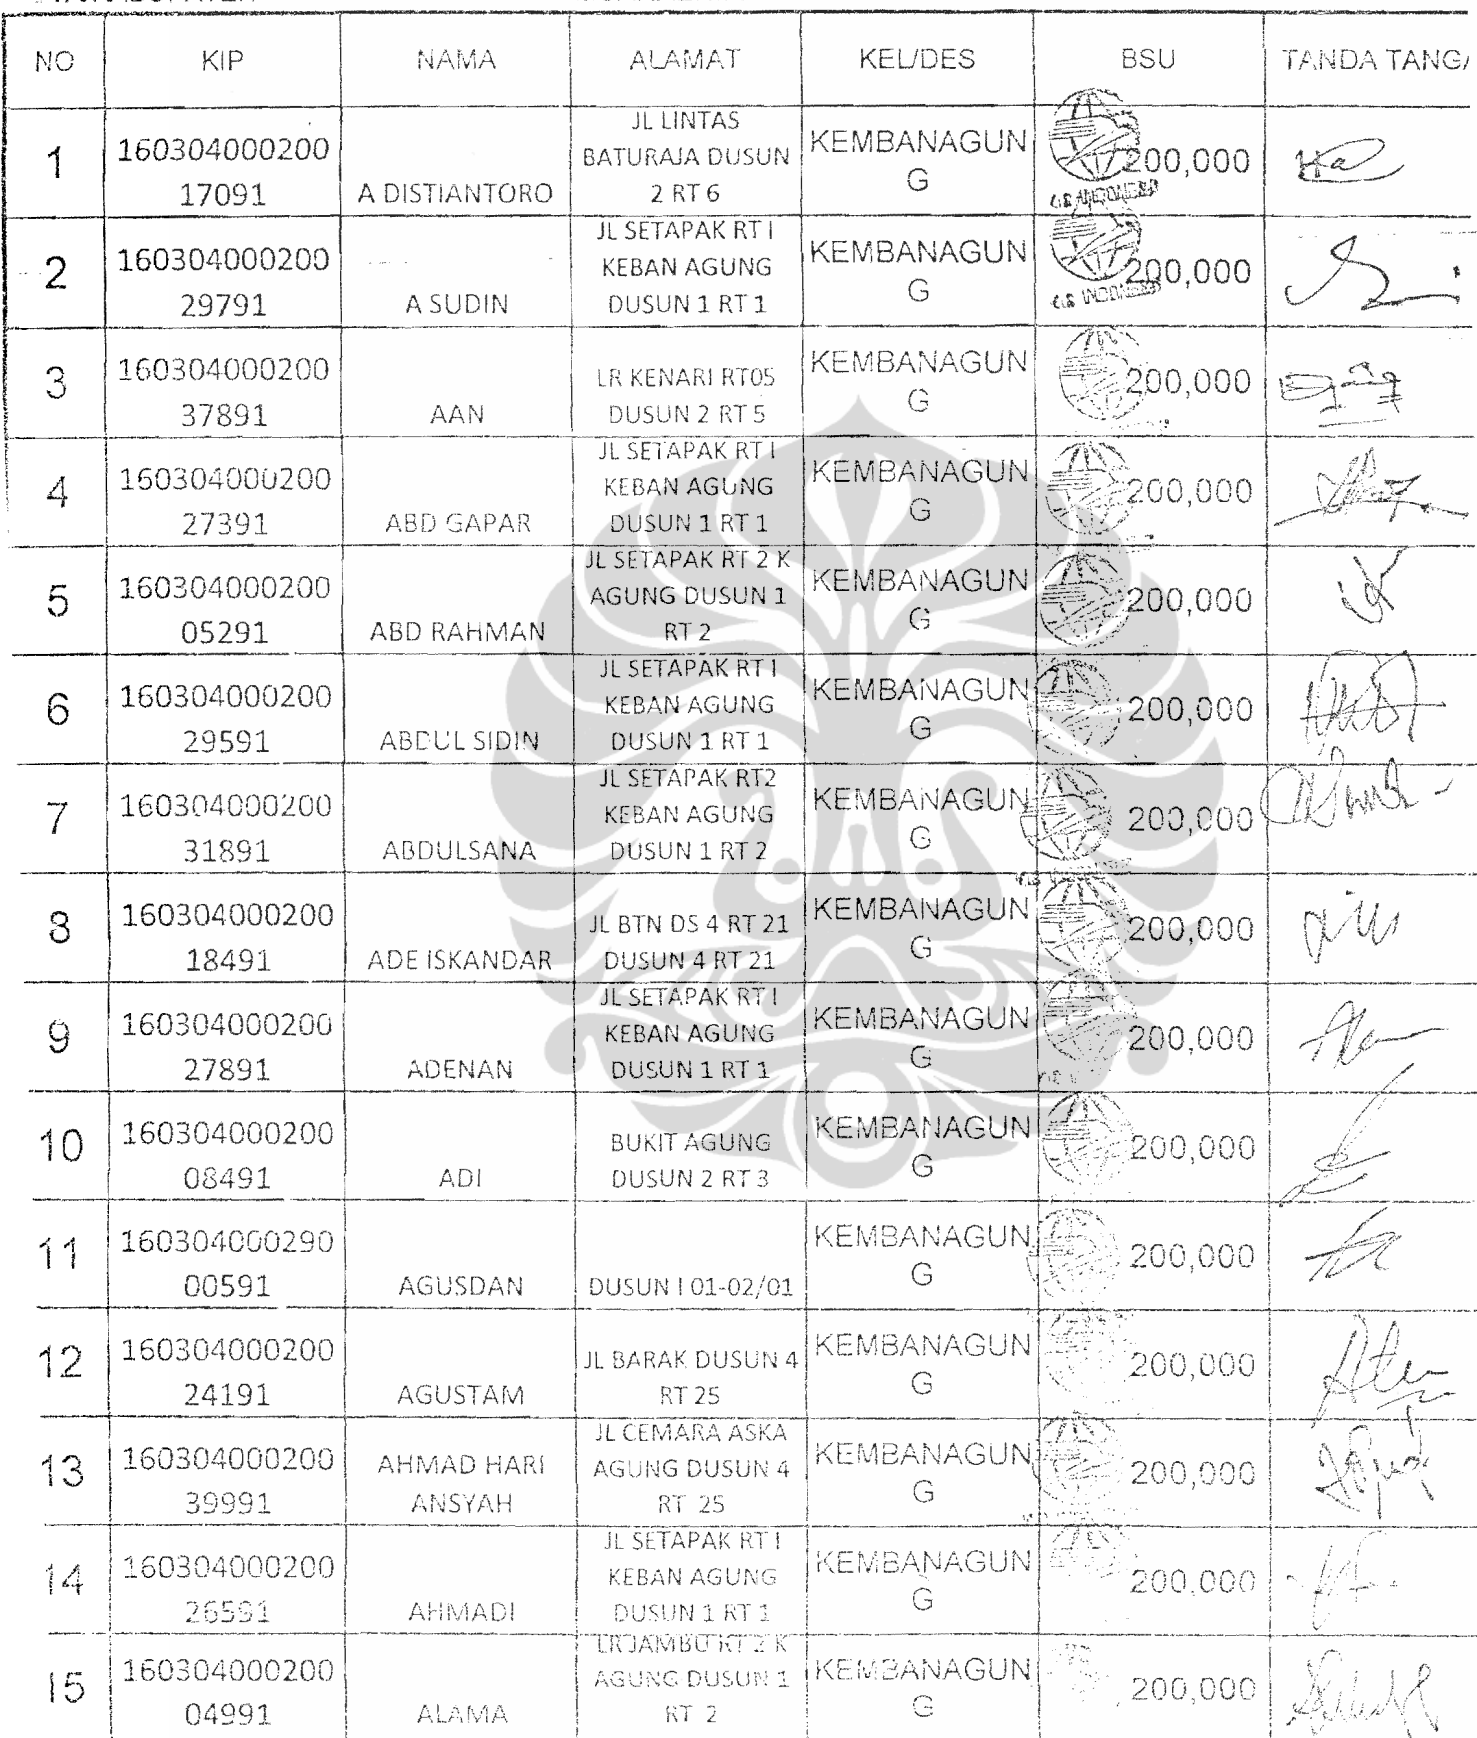 NO KIP NAMA ALAMAT KEL/DES BSU TANDA TANGA
1 160304000200 17091 A DISTIANTORO JL LINTAS BATURAJA DUSUN 2 RT 6 KEMBANAGUN G 200,000
2 160304000200 29791 A SUDIN JL SETAPAK RT I KEBAN AGUNG DUSUN 1 RT 1 KEMBANAGUN G 200,000
3 160304000200 37891 AAN LR KENARI RT05 DUSUN 2 RT 5 KEMBANAGUN G 200,000
4 160304000200 27391 ABD GAPAR JL SETAPAK RT I KEBAN AGUNG DUSUN 1 RT 1 KEMBANAGUN G 200,000
5 160304000200 05291 ABD RAHMAN JL SETAPAK RT 2 K AGUNG DUSUN 1 RT 2 KEMBANAGUN G 200,000
6 160304000200 29591 ABDUL SIDIN JL SETAPAK RT I KEBAN AGUNG DUSUN 1 RT 1 KEMBANAGUN G 200,000
7 160304000200 31891 ABDULSANA JL SETAPAK RT2 KEBAN AGUNG DUSUN 1 RT 2 KEMBANAGUN G 200,000
8 160304000200 18491 ADE ISKANDAR JL BTN DS 4 RT 21 DUSUN 4 RT 21 KEMBANAGUN G 200,000
9 160304000200 27891 ADENAN JL SETAPAK RT I KEBAN AGUNG DUSUN 1 RT 1 KEMBANAGUN G 200,000
10 160304000200 08491 ADI BUKIT AGUNG DUSUN 2 RT 3 KEMBANAGUN G 200,000
11 160304000290 00591 AGUSDAN DUSUN I 01-02/01 KEMBANAGUN G 200,000
12 160304000200 24191 AGUSTAM JL BARAK DUSUN 4 RT 25 KEMBANAGUN G 200,000
13 160304000200 39991 AHMAD HARI ANSYAH JL CEMARA ASKA AGUNG DUSUN 4 RT 25 KEMBANAGUN G 200,000
14 160304000200 26591 AHMADI JL SETAPAK RT I KEBAN AGUNG DUSUN 1 RT 1 KEMBANAGUN G 200,000
15 160304000200 04991 ALAMA LR JAMBU RT 2 K AGUNG DUSUN 1 RT 2 KEMBANAGUN G 200,000